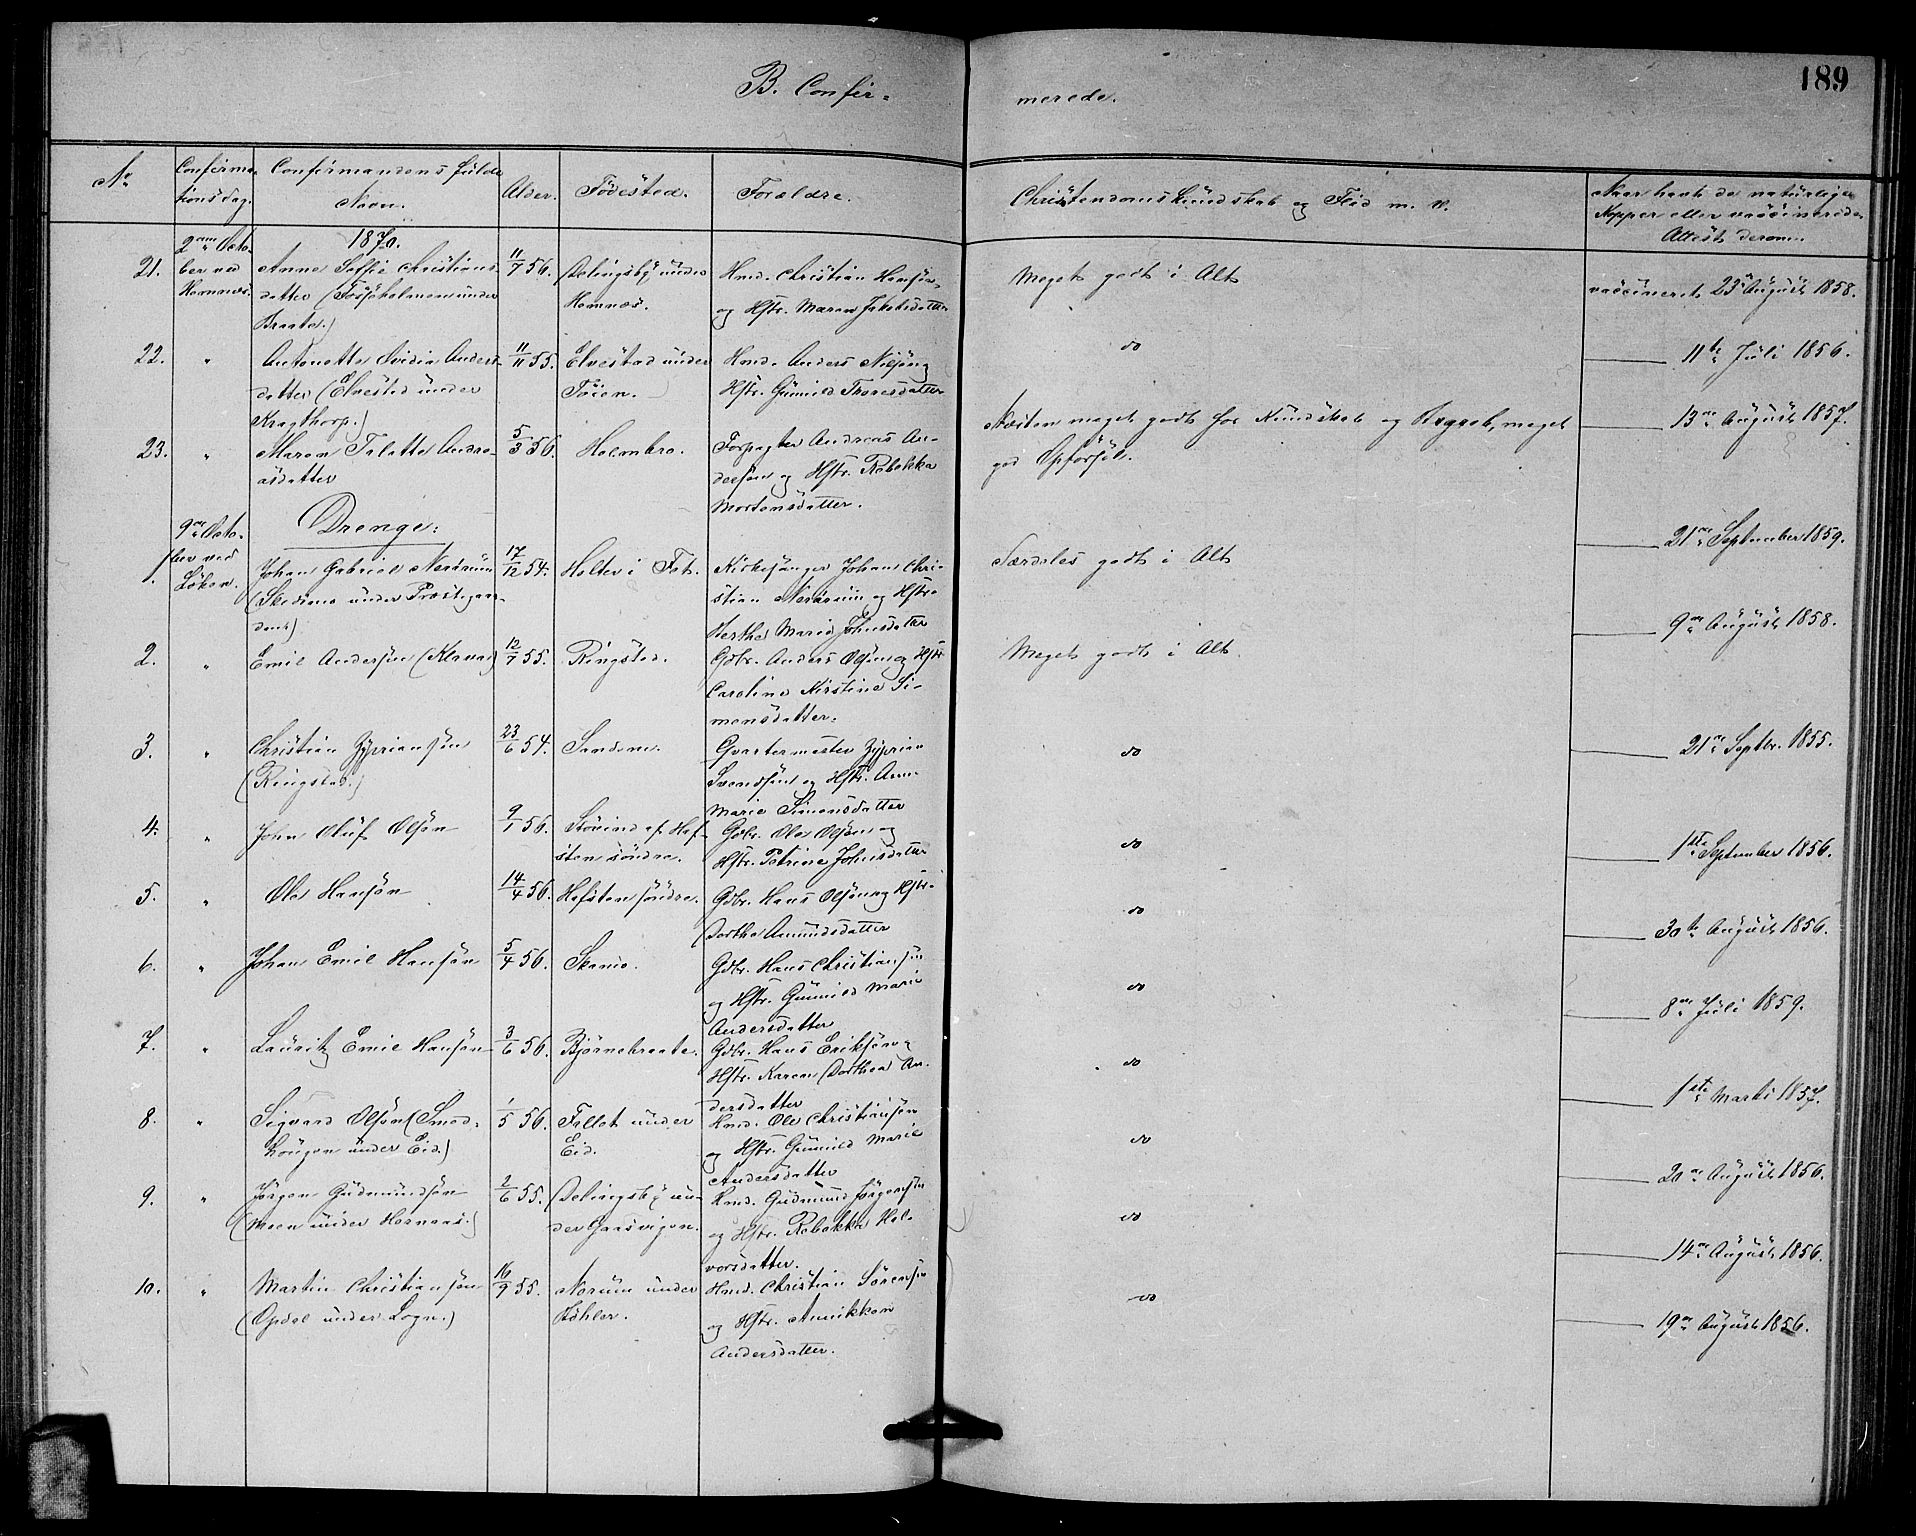 189
B. Confir-
merede.
No
Confirma-
tionsdag.
Confirmandens fulde
Navn.
Alder.
Fødested.
Forældre.
Christendomskundskab og Flid m. v.
Naar havt de naturlige
Kopper eller vaccinerede
Attest derom.
1870.
21.
2den Octo-
ber ved
Hemnæs.
Anne Sofie Christians-
datter (Fosjøholmen under
Braate.)
11/7 56.
Delingsby under
Hemnæs.
Hmd. Christian Hansøn
og Hstr. Maren Jakobsdatter
Meget godt i Alt
vaccineret 23de August 1858.
22.
"
Antonette Ovidia Anders-
datter (Elvestad under
Kragthorp.)
11/11 55.
Elvestad under
Tøien.
Hmd. Anders Nilsøn og
Hstr. Gunild Thoresdatter
do
11te Juli 1856.
23.
"
Maren Talette Andre-
asdatter
5/3 56.
Holmbro.
Forpagter Andreas An-
dersøn og Hstr. Rebekka
Mortensdatter.
Næsten meget godt for Kundskab og Begreb, meget
god Opførsel.
13de August 1857.
Drenge:
1.
9de Octo-
ber ved
Løken.
Johan Gabriel Nerdrum
(Skedsmo under Præstegaar-
den.)
17/12 54.
Holter i Fet.
Kirkesanger Johan Chri-
stian Nerdrum og Hstr.
Herthe Marie Johnsdatter
Særdeles godt i Alt
21de September 1859.
2.
"
Emil Andersøn (Kleva)
12/7 55.
Ringstad.
Gdbr. Anders Olsøn og Hstr
Caroline Kirstine Si-
monsdatter.
Meget godt i Alt.
9de August 1858.
3.
"
Christian Zyprianssøn
(Ringstad.)
23/6 54.
Sandem.
Qvartermester Zyprian
Svendsøn og Hstr. Anne
Marie Simensdatter
do
21de Septbr. 1855.
4.
"
John Oluf Olsøn
9/1 56.
Støvind af Hof-
sten søndre.
Gdbr. Ole Olsøn og
Hstr. Petrine Johnsdatter
do
1ste September 1856.
5.
"
Ole Hansøn
14/4 56.
Hofsten søndre.
Gdbr. Hans Olsøn og Hstr.
Dorthe Amundsdatter
do
30te August 1856.
6.
"
Johan Emil Hansøn
5/4 56.
Skamo.
Gdbr. Hans Christiansøn
og Hstr. Gunild Marie
Andersdatter
do
8de Juli 1859.
7.
"
Lauritz Emil Hansøn
3/6 56.
Bjørnebraate.
Gdbr. Hans Eriksøn og
Hstr. Karen Dorthea An-
dersdatter
do
1ste Marts 1857.
8.
"
Sigvard Olsøn (Smed-
hougen under Eid.)
1/5 56.
Fallet under
Eid.
Hmd. Ole Christiansøn
og Hstr. Gunild Marie
Andersdatter
do
20de August 1856.
9.
"
Jørgen Gudmundsøn
(Moen under Hemnæs.)
2/6 55.
Delingsby un-
der Gaasvigen.
Hmd. Gudmund Jørgensøn
og Hstr. Rebekka Hal-
vorsdatter.
do
14de August 1856.
10.
"
Martin Christiansøn
(Opdal under Logn.)
16/9 55.
Norum under
Kehler.
Hmd. Christian Sørensøn
og Hstr. Annikken
Andersdatter.
do
19de August 1856.